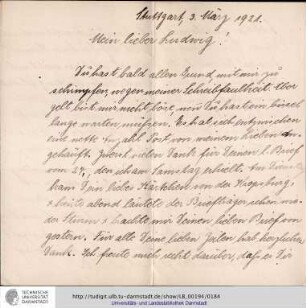 Stuttgart, 3. März 1921.
Mein lieber Ludwig!
Du hast bald allen Grund mit mir zu
schimpfen, wegen meiner Schreibfaulheit. Aber
gelt, bist mir nicht böse, weil Du hast ein bissch
lange warten müssen. Es hat sich inzwischen
eine nette Post von meinem Lieben an-
gehäuft. Zuerst vielen Dank für Deinen l. Brief
vom 24., den ich am Samstag erhielt. Am
kam Dein liebes Kärtchen von der
& heute abend läutete der Briefträger schon wie-
der Sturm & brachte mir Deinen lieben Brief von
gestern. Für alle Deine lieben Zeilen hab herzlichen
Dank. Ich freute mich recht darüber, daß es Dir
TECHNISCHE
UNIVERSITÄT
DARMSTADT
http://tudigit.ulb.tu-darmstadt.de/show/LB_00194/0184
Universitäts- und Landesbibliothek Darmstadt